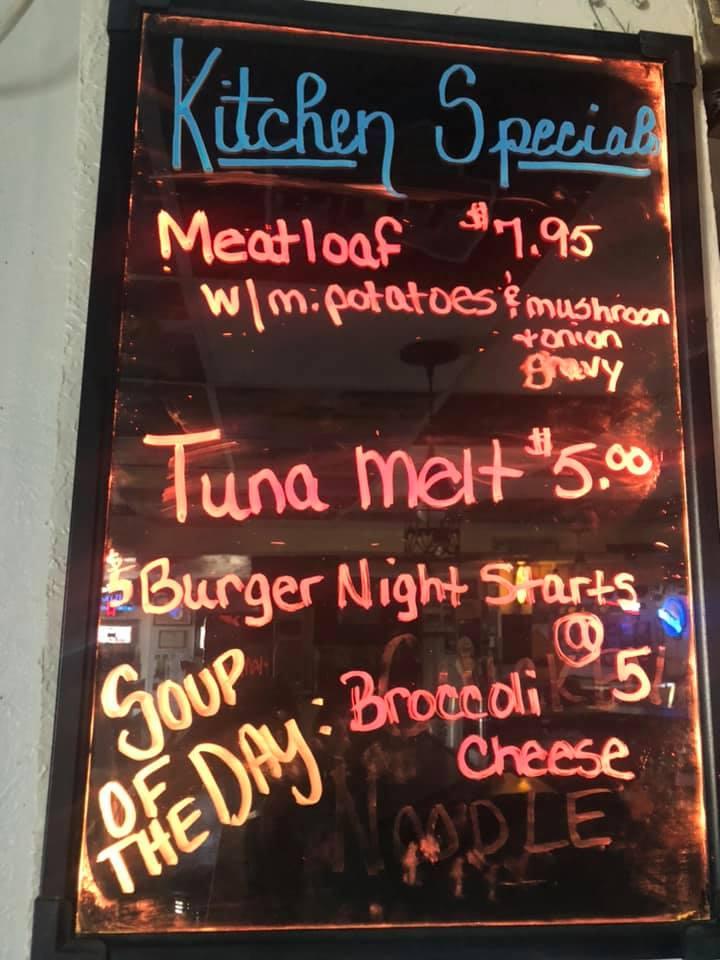 Kitchen Specials
Meatloaf $7.95
w/m. potatoes & mushroom
+ onion
gravy
Tuna Melt $5.00
$5 Burger Night Starts
@ 5
SOUP
OF
THE DAY: Broccoli
Cheese
NOODLE